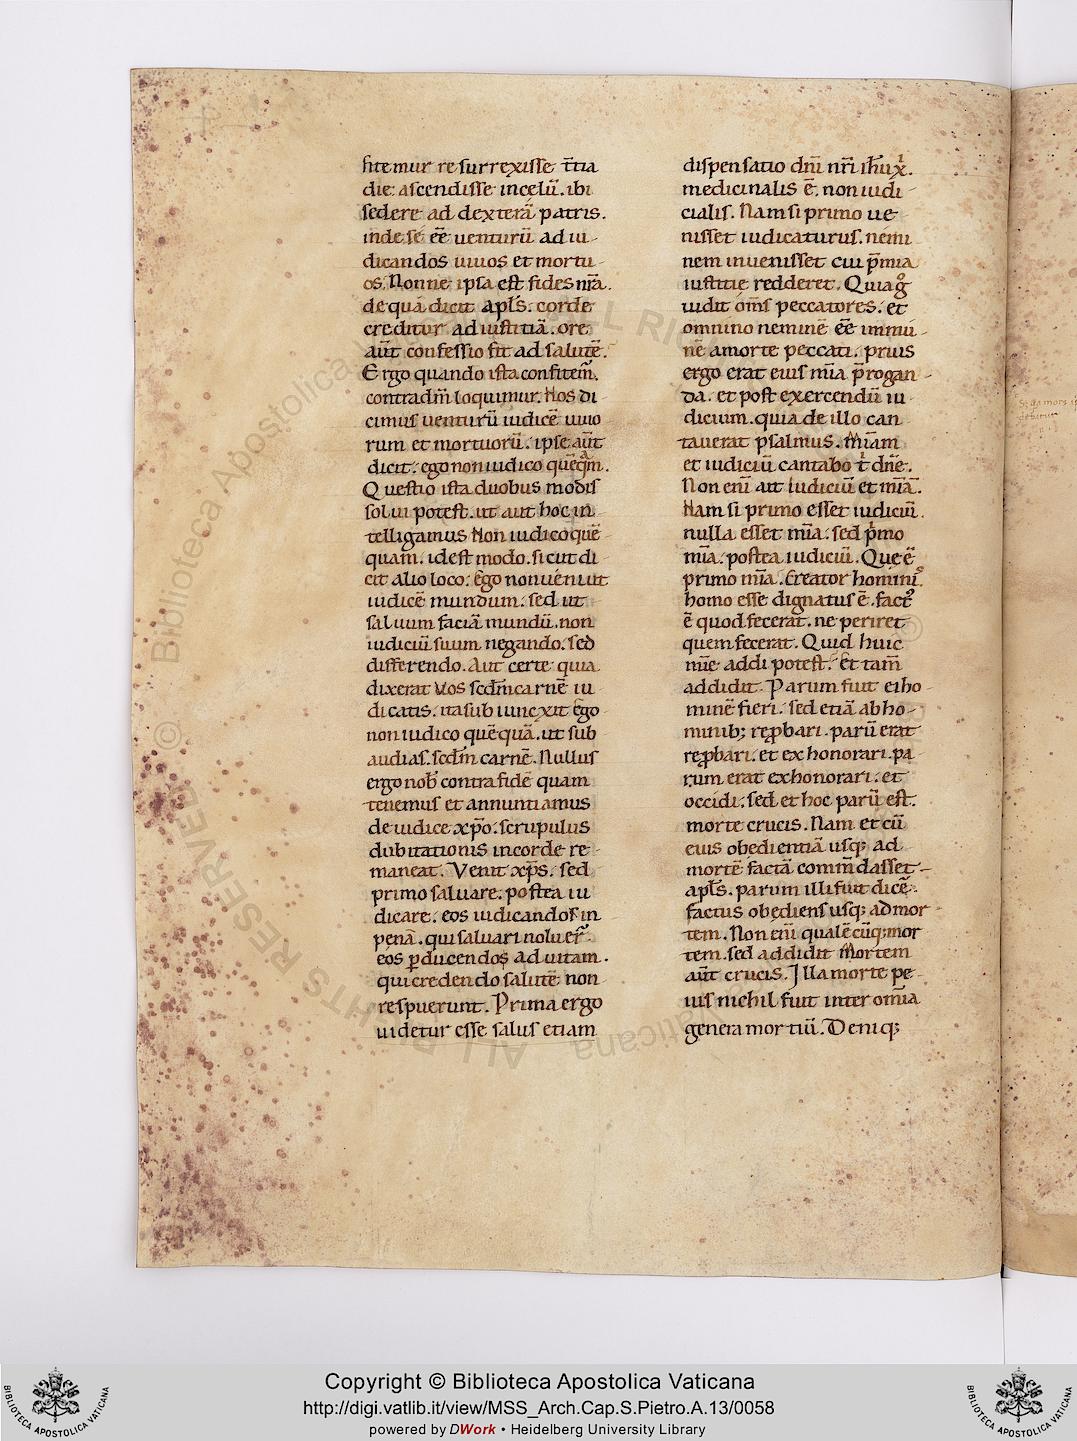 fitemur resurrexisse t̄tia
die: ascendisse incęlū. ibi
sedere ad dexterā patris.
inde sé ēē uenturū ad iu-
dicandos uiuos et mortu-
os. Nonne ipsa est fides nr̄a.
de qua dicit apłs. corde
creditur ad iustitiā. ore
aūt confessio fit ad salutē.
Ergo quando ista confitem̄.
contradm̄ loquimur. Nos di
cimus uenturū iudicē uiuo
rum et mortuorū. ipse aūt
dicit: ego non iudico quēq̄m.
Questio ista duobus modis
solui potest. ut aut hoc in
telligamus Non iudico quē
quam. id est modo. sicut di
cit alio loco: Ego non uéni ut
iudicē mundum: sed ut
saluum faciā mundū. non
iudiciū suum negando. sed
differendo. Aut certe quia
dixerat Uos scdm̄ carnē iu
dicatis. ita subiuncxit Ego
non iudico quēquā. ut sub
audias. scdm̄ carnē. Nullus
ergo nob̄ contra fidē quam
tenemus et annuntiamus
de iudice xp̄o. scrupulus
dubitationis incorde re-
maneat. Venit xp̄s. sed
primo saluare. postea iu
dicare. eos iudicandos in
penā. qui saluari noluer̄.
eos ꝑducendos ad uitam.
qui credendo salutē non
respuerunt. Prima ergo
uidetur esse salus etiam
dispensatio dn̄i nr̄i ih̄u x̄.
medicinalis ē. non iudi-
cialis. Nam si primo ue-
nisset iudicaturus. nemi
nem inuenisset cui p̄mia
iustitię redderet. Quia g̊
uidit om̄s peccatores. et
omnino neminē ēē immu-
nē amorte peccati. prius
ergo erat eius mīa p̄rogan-
da. et post exercendū iu
dicium. quia de illo can
tauerat psalmus. Miam̄
et iudiciū cantabo t̄ dn̄e.
Non enī ait iudiciū et mīā.
Nam si primo esset iudiciū.
nulla esset mīa. sed p̄mo
mīa. postea iudiciū. Que ē
primo mīa. Creator homini᷒
homo esse dignatus ē. fact᷒
ē quod fecerat. ne periret
quem fecerat. Quid huic
mīe addi potest. Et tam̄
addidit. Parum fuit ei ho-
minē fieri. sed etiā ab ho-
minib; reꝓbari. parū erat
reꝓbari. et exhonorari. pa-
rum erat exhonorari. et
occidi. sed et hoc parū est.
morte crucis. Nam et cū
eius obedientiā usq; ad
mortē factā comm̄dasset-
apłs. parum illi fuit dicē.
factus obediens usq; ad mor-
tem. Non enī qualēcūq; mor
tem. sed addidit Mortem
aūt crucis. Illa morte pe-
ius nichil fuit inter omīa
genera mortiū. Deniq;
ALL RIGHTS RESERVED
© Biblioteca Apostolica Vaticana
Copyright © Biblioteca Apostolica Vaticana
http://digi.vatlib.it/view/MSS_Arch.Cap.S.Pietro.A.13/0058
powered by DWork • Heidelberg University Library
BIBLIOTECA APOSTOLICA VATICANA
BIBLIOTECA APOSTOLICA VATICANA